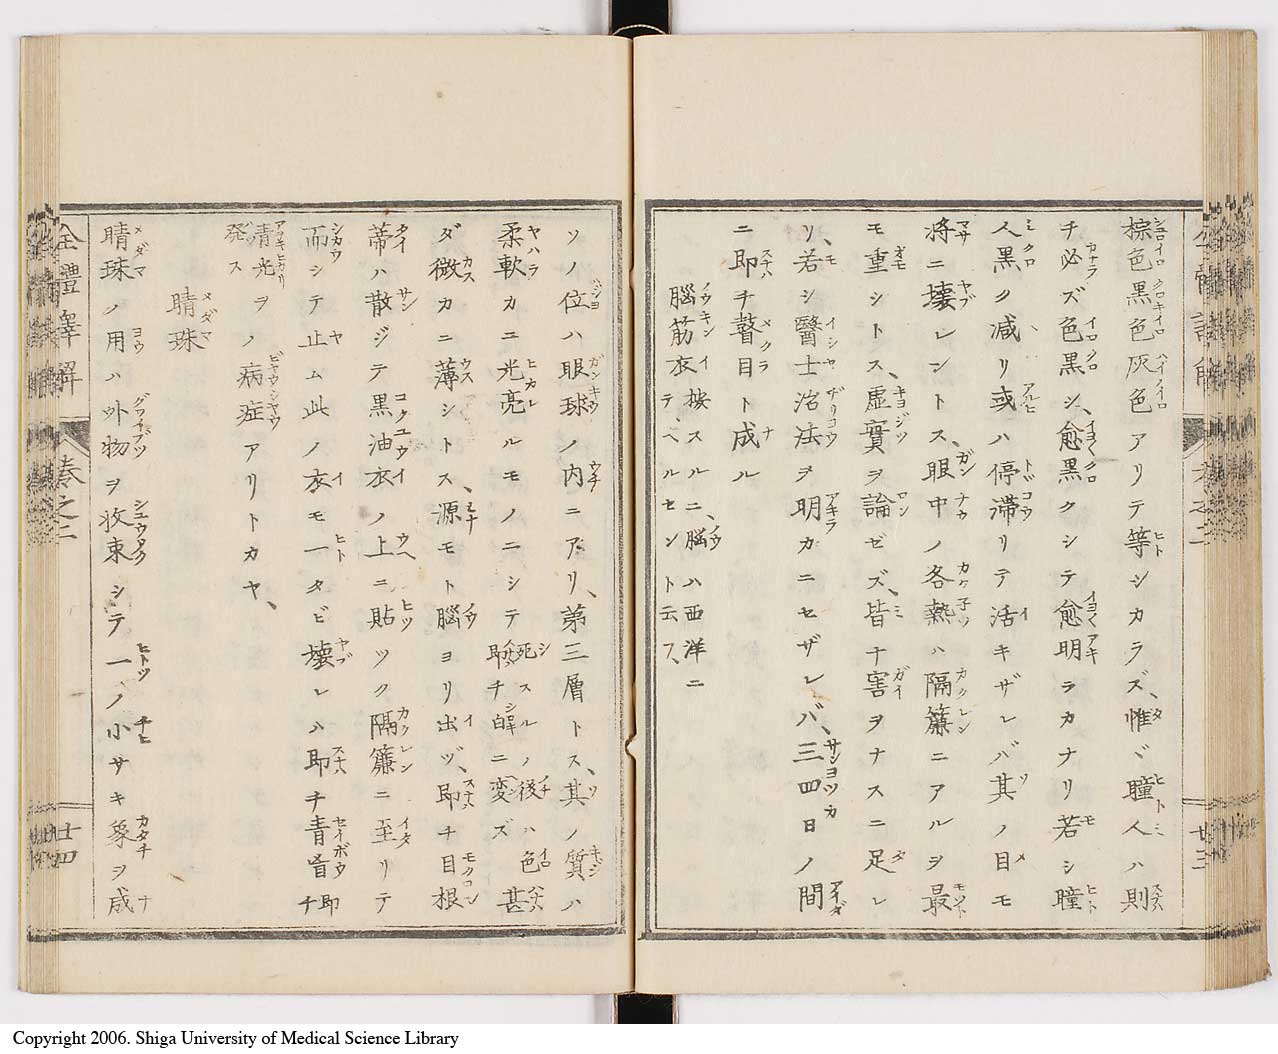 棕色黒色灰色アリテ等シカラズ、惟ダ瞳人ハ則
チ必ズ色黒シ、愈黒クシテ愈明ラカナリ若シ瞳
人黒ク減リ或ハ停滞リテ活キザレバ其ノ目モ
将ニ壊レントス、眼中ノ各熱ハ隔簾ニアルヲ最
モ重シトス、虚實ヲ論ゼズ、皆ナ害ヲナスニ足レ
リ、若シ醫士治法ヲ明カニセザレバ、三四日ノ間
ニ即チ瞽目ト成ル
腦筋衣 按スルニ、腦ハ西洋ニ
テ、ヘルセント云フ、
ソノ位ハ眼球ノ内ニアリ、第三層トス、其ノ質ハ
柔軟カニ光亮ルモノニシテ死スルノ後ハ色甚
ダ微カニ薄シトス、源モト腦ヨリ出ヅ、即チ目根
蒂ハ散ジテ黒油衣ノ上ニ貼ツク隔簾ニ至リテ
而シテ止ム此ノ衣モ一タビ壊レハ即チ青盲即チ
青光ヲ発ス ノ病症アリトカヤ、
睛珠
睛珠ノ用ハ外物ヲ收束シテ一ノ小サキ象ヲ成
全體譯解 巻之二 廿四
Copyright 2006. Shiga University of Medical Science Library